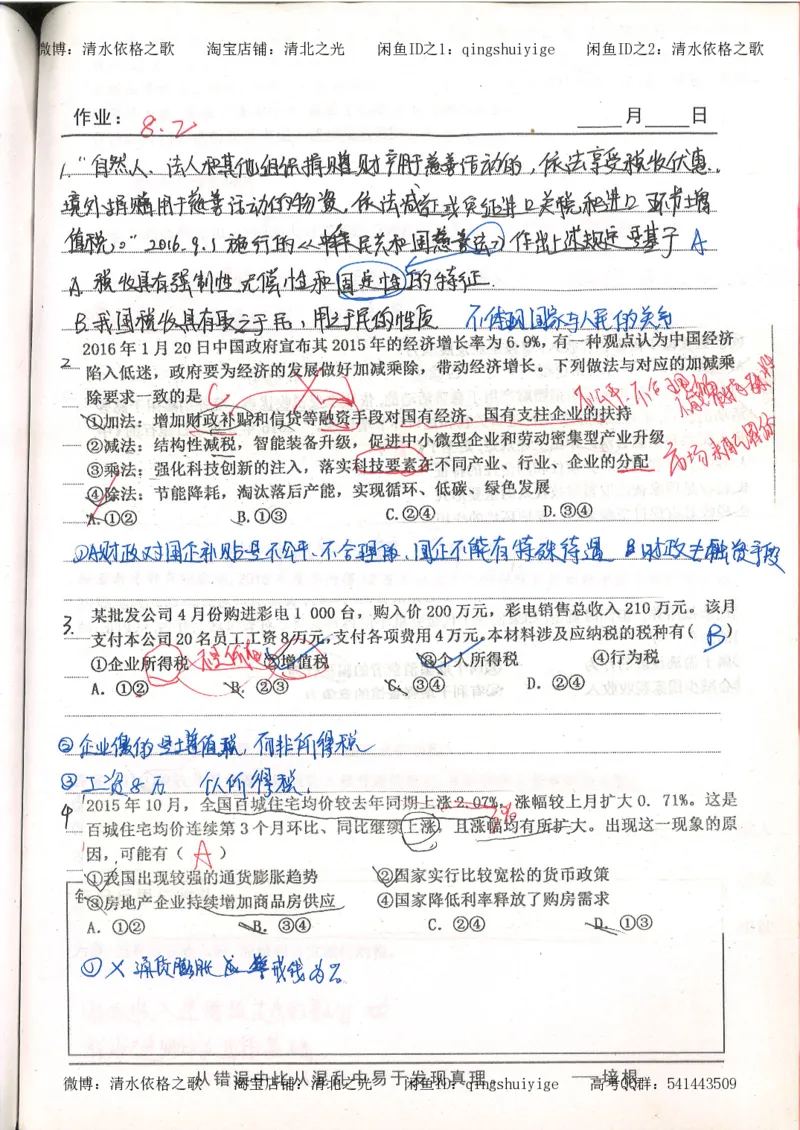 微博：清水依格之歌 淘宝店铺：清北之光 闲鱼ID之1：qingshuiyige 闲鱼ID之2：清水依格之歌
作业： 8.2 月 日
1."自然人、法人和其他组织捐赠财产用于慈善活动的，依法享受税收优惠。
境外捐赠用于慈善活动的物资，依法减征或免征进口关税和进口环节增
值税。"2016.9.1施行的《中华民共和国慈善法》作出上述规定是基于 A
A. 税收具有强制性无偿性和固定性的特征.
B.我国税收具有取之于民，用之于民的性质 不体现国家与人民的关系
2 2016年1月20日中国政府宣布其2015年的经济增长率为6.9%，有一种观点认为中国经济
陷入低迷，政府要为经济的发展做好加减乘除，带动经济增长。下列做法与对应的加减乘
除要求一致的是 C 不公平、不合理
①加法：增加财政补贴和信贷等融资手段对国有经济、国有支柱企业的扶持
②减法：结构性减税，智能装备升级，促进中小微型企业和劳动密集型产业升级
③乘法：强化科技创新的注入，落实科技要素在不同产业、行业、企业的分配 市场来配置的
④除法：节能降耗，淘汰落后产能，实现循环、低碳、绿色发展
A.①② B.①③ C.②④ D.③④
①A财政对国企补贴是不公平、不合理的、国企不能有特殊待遇 B财政≠融资手段
3. 某批发公司4月份购进彩电1 000台，购入价200万元，彩电销售总收入210万元。该月
支付本公司20名员工工资8万元,支付各项费用4万元,本材料涉及应纳税的税种有( B )
①企业所得税 ②增值税 ③个人所得税 ④行为税
A. ①② B. ②③ C. ③④ D. ②④
②企业缴的是增值税，而非所得税
③工资8万 个人所得税.
4 2015年10月，全国百城住宅均价较去年同期上涨2.07%，涨幅较上月扩大0. 71%。这是
百城住宅均价连续第3个月环比、同比继续上涨，且涨幅均有所扩大。出现这一现象的原
因，可能有（ A ）
①我国出现较强的通货膨胀趋势 ②国家实行比较宽松的货币政策
③房地产企业持续增加商品房供应 ④国家降低利率释放了购房需求
A. ①② B. ③④ C. ②④ D. ①③
①× 通货膨胀
从错误中比从混乱中易于发现真理 ——培根
微博：清水依格之歌 淘宝店铺：清北之光 闲鱼ID：qingshuiyige 高考QQ群：541443509